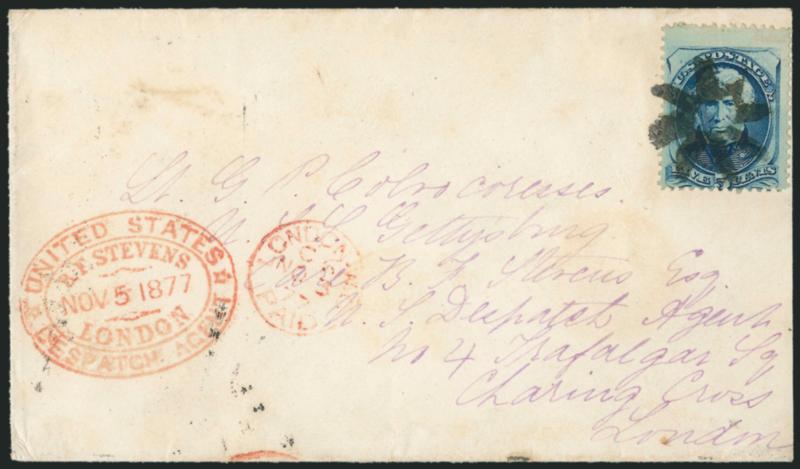 U.S. POSTAGE
Lt. G. P. Colvocoresses.
U. S. S. Gettysburg
Care B. F. Stevens Esq
U. S. Despatch Agent
No 4 Trafalgar Sq
Charing Cross
London
UNITED STATES
B.F. STEVENS
NOV 5 1877
LONDON
DESPATCH AGENT
LONDON
PAID